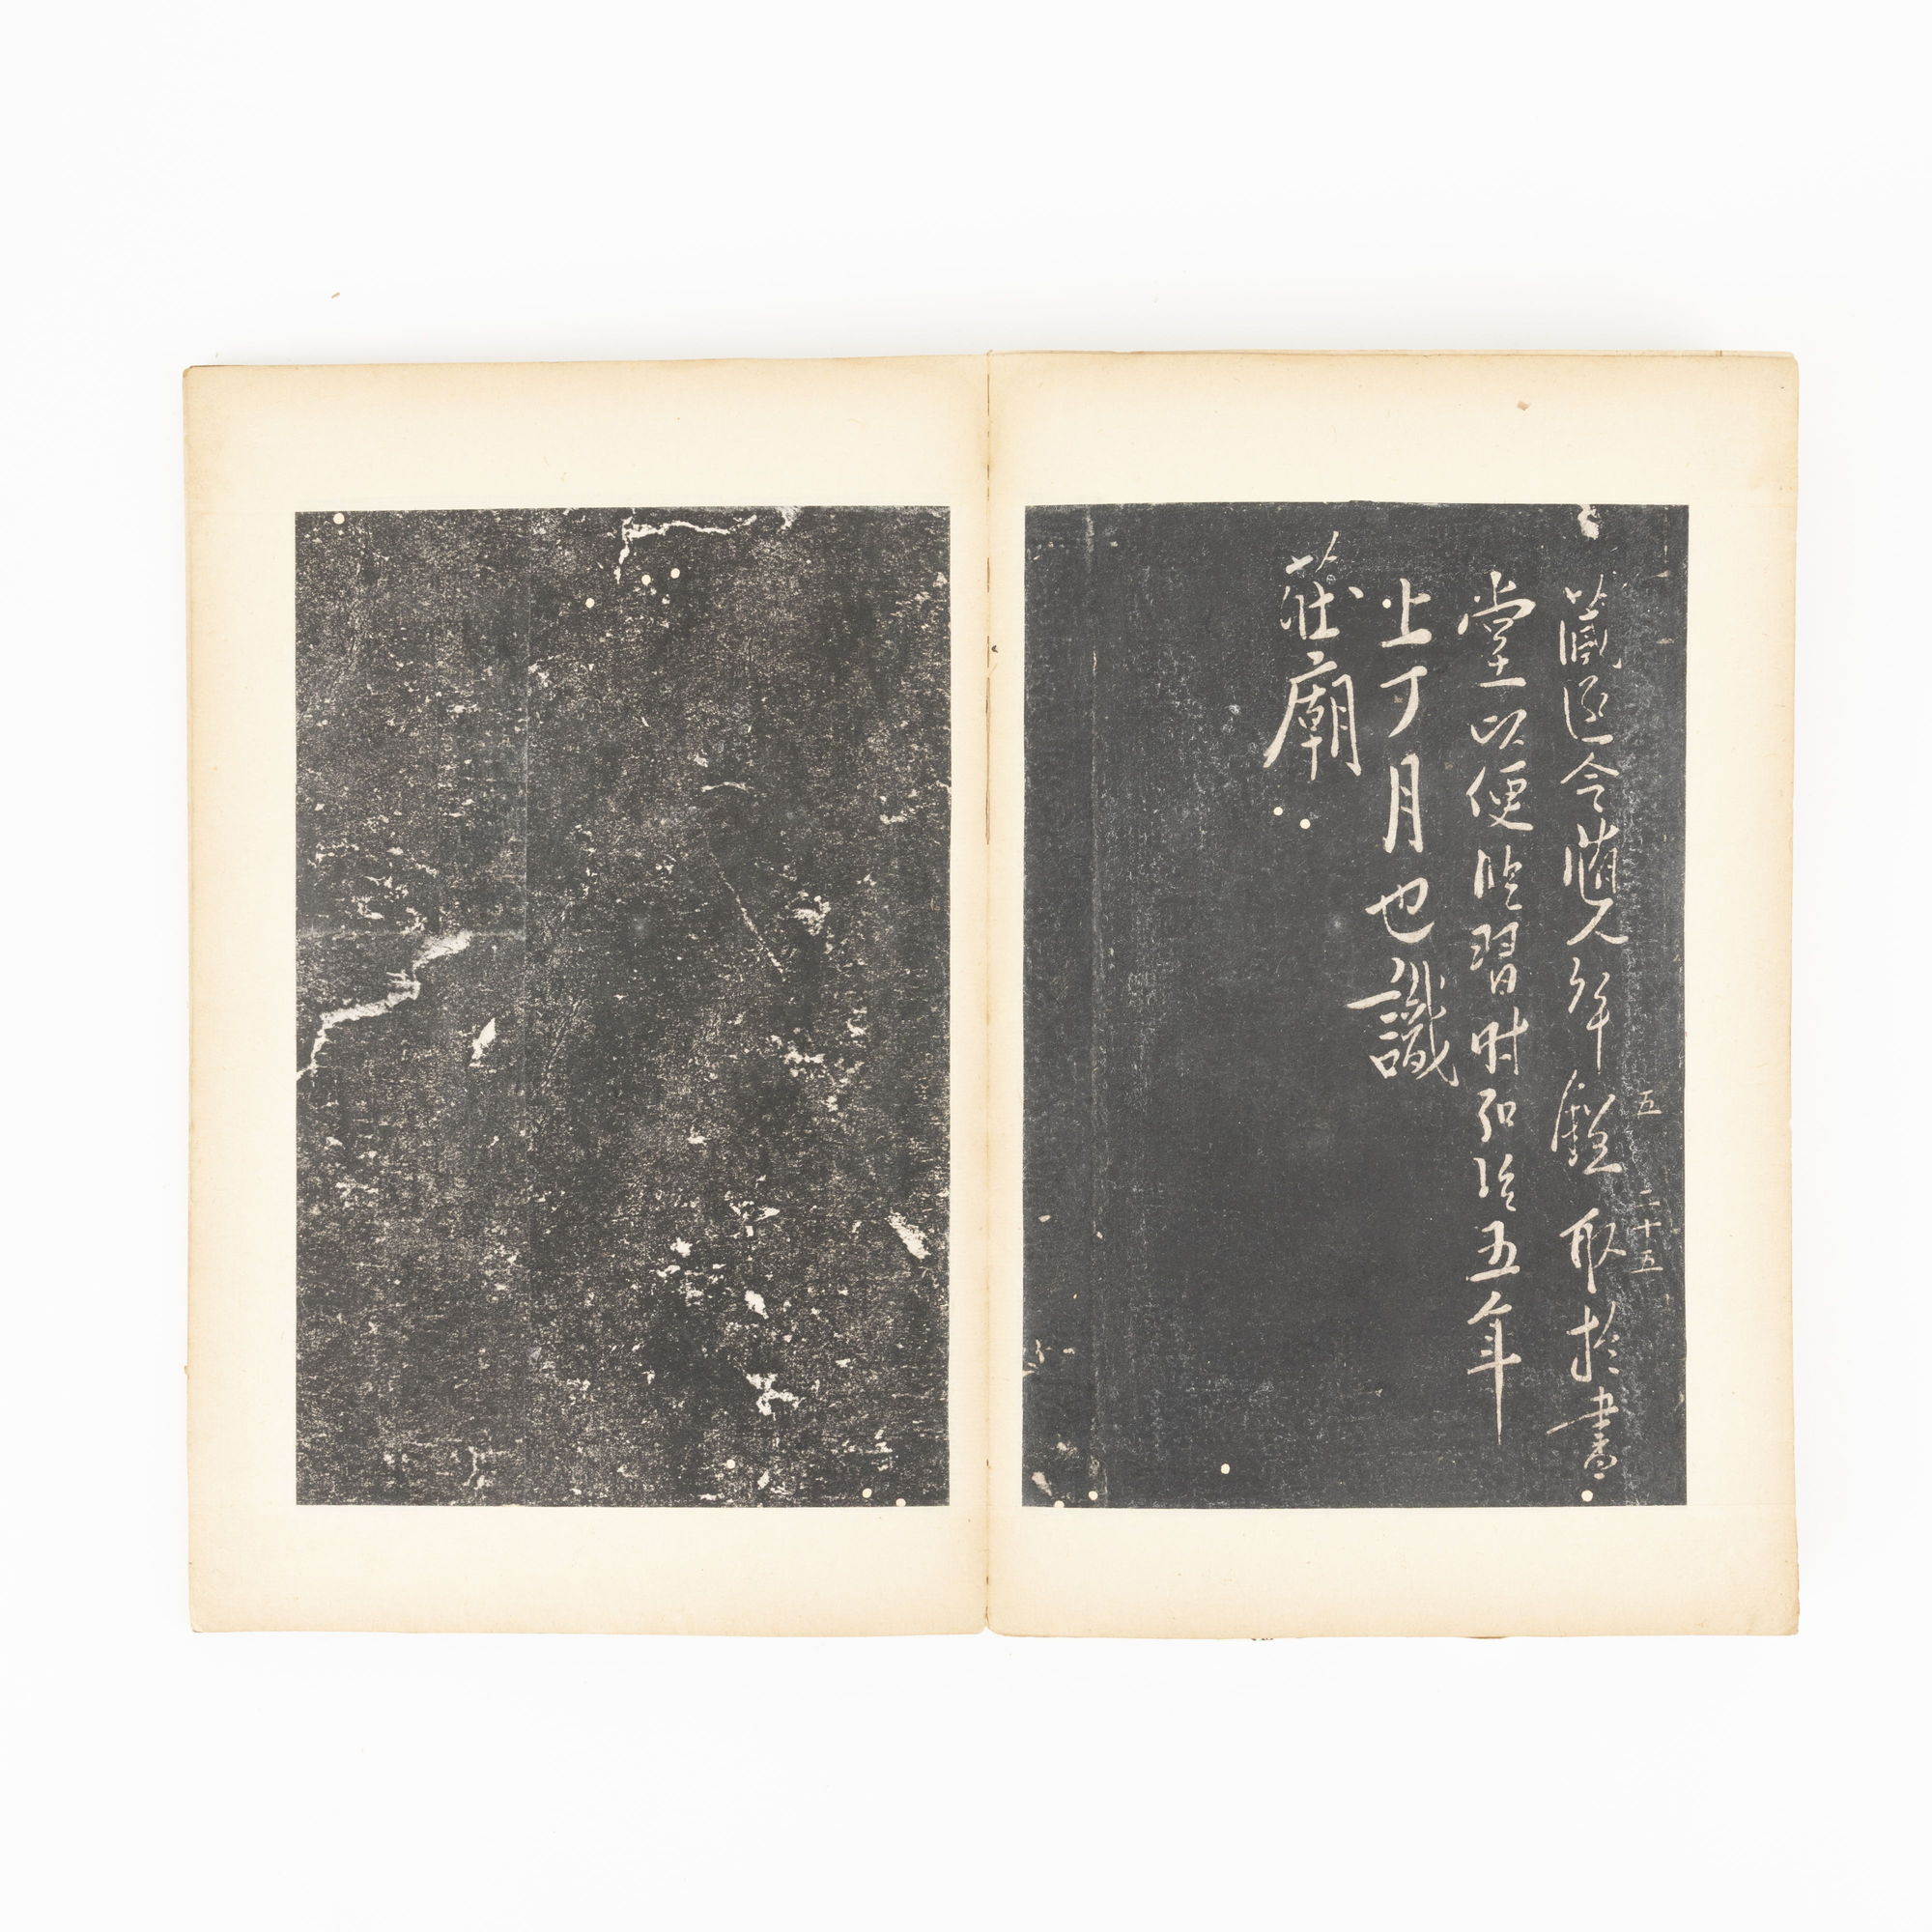 五 二十五
藏匣今随久年鑑取於書
堂以便臨習時弘治五年
上丁月也識
莊廟